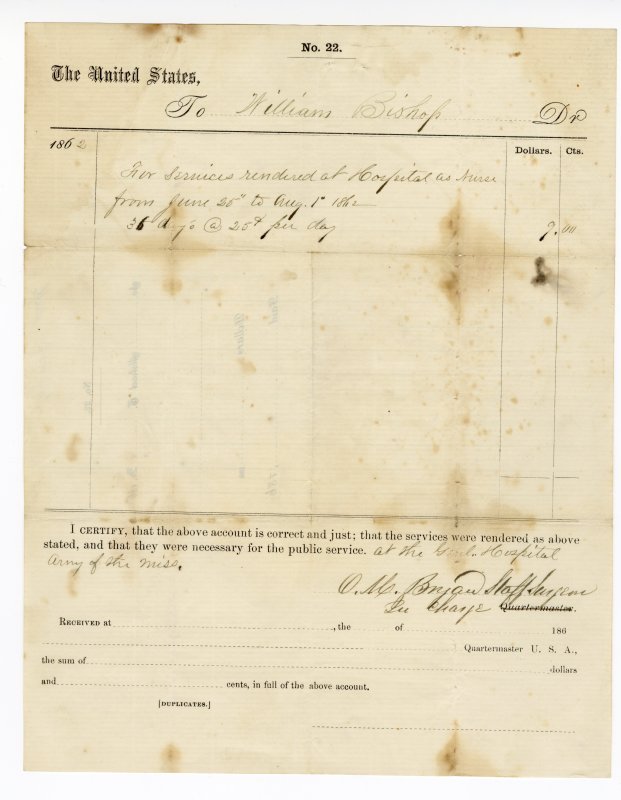 No. 22.
The United States,
To William Bishop Dr
1862
Dollars. Cts.
For services rendered at Hospital as Nurse
from June 25" to Aug. 1st 1862
36 days @ 25¢ per day 9.00
I CERTIFY, that the above account is correct and just; that the services were rendered as above
stated, and that they were necessary for the public service. at the Genl. Hospital
Army of the Miss.
O. M. Bryan Staff Surgeon
In Charge Quartermaster.
RECEIVED at , the of 186
Quartermaster U. S. A.,
the sum of dollars
and cents, in full of the above account.
[DUPLICATES.]